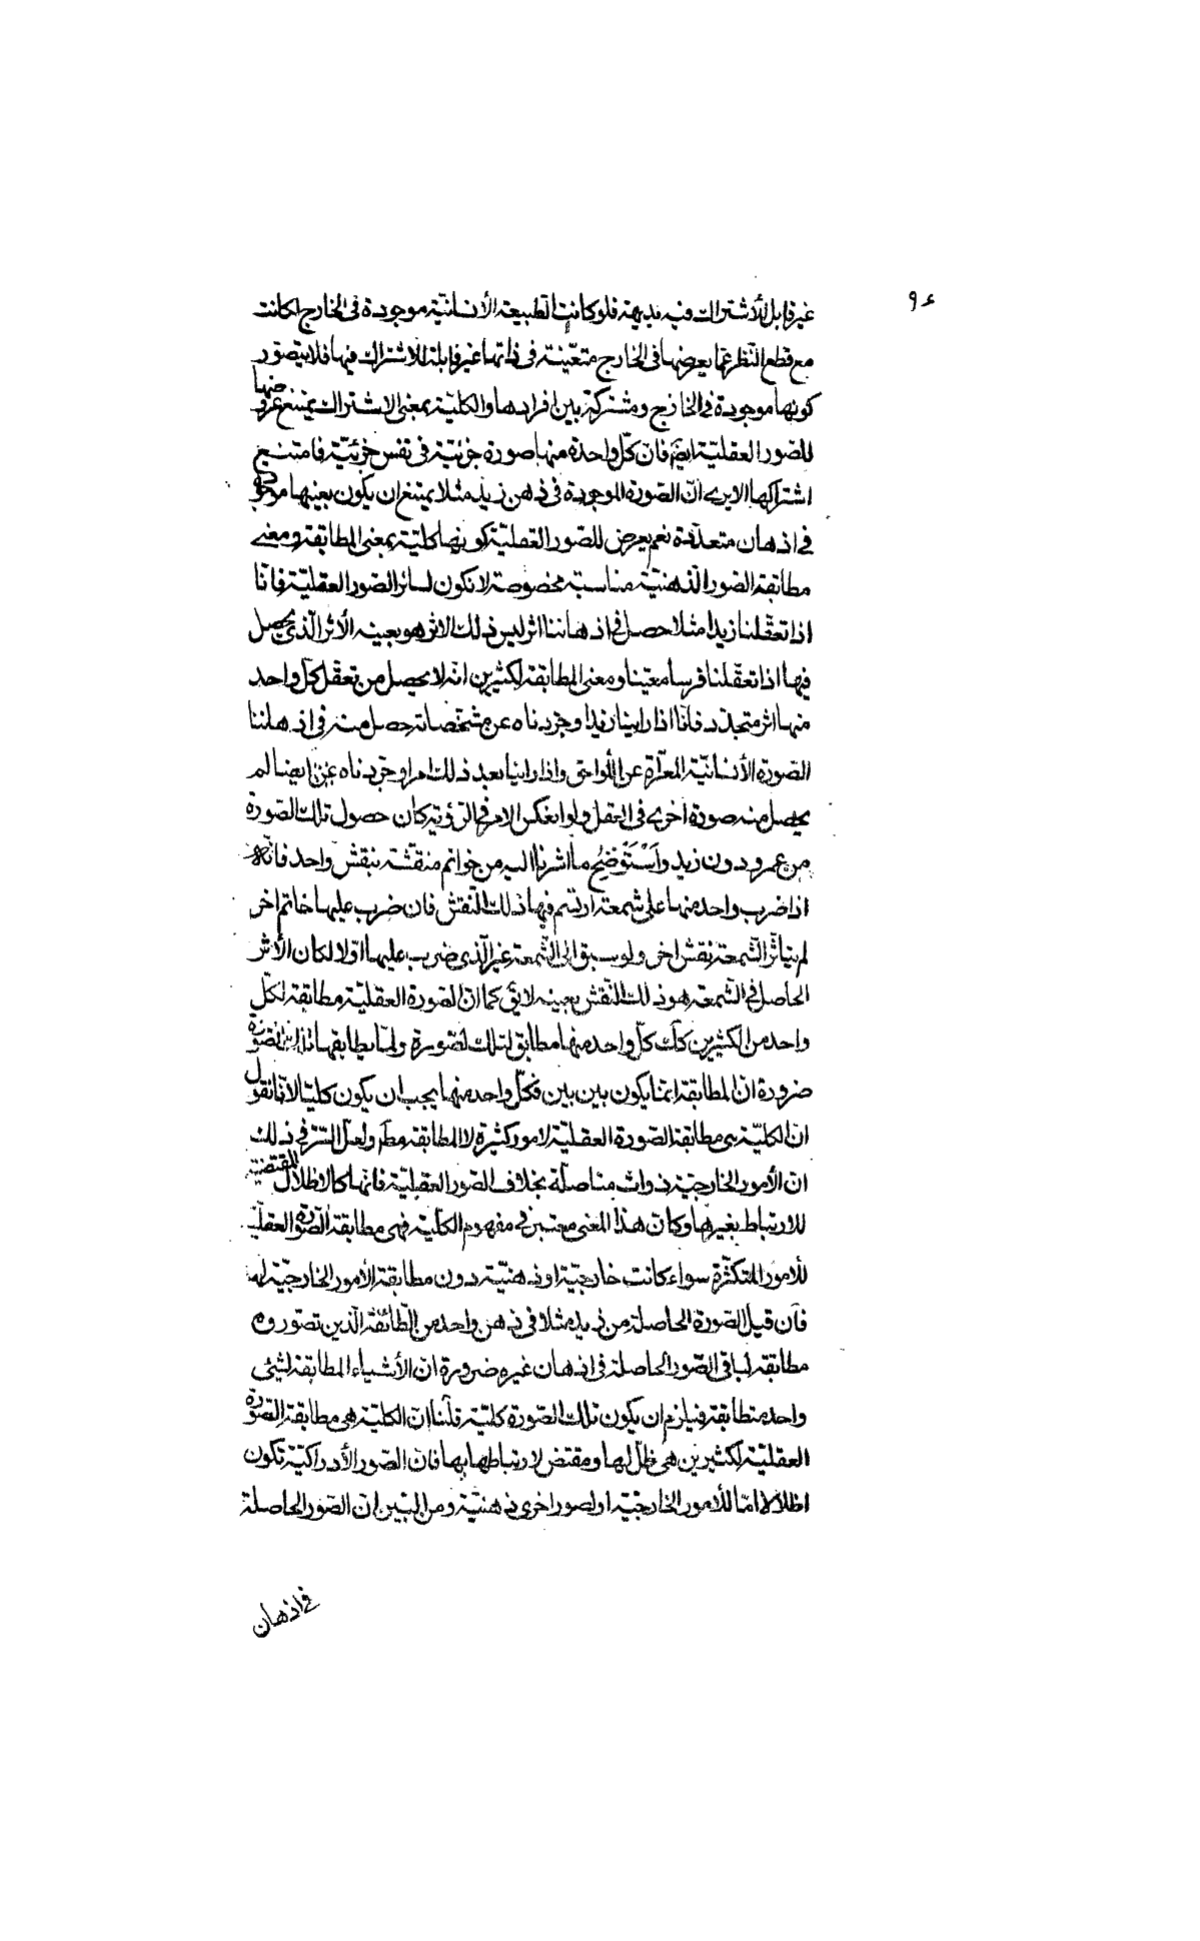 ٩٤
غير قابل للأشتراك فيه بديهة فلو كانت الطبيعة الأنسانيّة موجودة فى الخارج لكانت
مع قطع النّظر عمّا يعرضها فى الخارج متعيّنة فى ذاتها غير قابلة للاشتراك فيها فلا يتصوّر
كونها موجودة فى الخارج ومشتركة بين افرادها والكليّة بمعنى الاشتراك يمتنع عروضها
للصّور العقليّة ايضم فان كلّ واحدة منها صورة جزئيّة فى نفس جزئيّة فامتنع
اشتراكها الايرى انّ الصّورة الموجودة فى ذهن زيد مثلا يمتنع ان يكون بعينها موجودة
فى اذهان متعدّدة نعم يعرض للصّور العقليّة كونها كليّة بمعنى المطابقة ومعنى
مطابقة الصّور الذّهنيّة مناسبة مخصوصة لا تكون لسائر الصّور العقليّة فانّا
اذا تعقّلنا زيدا مثلا حصل فى اذهاننا اثر ليس ذلك الاثر هو بعينه الأثر الّذى يحصل
فيها اذا تعقّلنا فرسا معيّنا ومعنى المطابقة لكثيرين انّه لا يحصل من تعقّل كلّ واحد
منها اثر متجدّد فانّا اذا راينا زيدا وجرّدناه عن مشخّصاته حصل منه فى اذهاننا
الصّورة الأنسانيّة المعرّاة عن اللّواحق واذا راينا بعد ذلك امرا وجرّدناه عن ايضا لم
يحصل منه صورة اخرى فى العقل ولو انعكس الامر فى الرّؤية كان حصول تلك الصّورة
من عمرو دون زيد واسْتَوْضِحْ ما اشرنا اليه من خواتم منقّشة بنقش واحد فانّه
اذا ضرب واحد منها على شمعة ارتسم فيها ذلك النّقش فان ضرب عليها خاتم اخر
لم يتأثّر الشّمعة بنقش اخر ولو سبق الى الشّمعة غير الّذى ضرب عليها اوّلا لكان الأثر
الحاصل فى الشّمعة هو ذلك النّقش بعينه لايق كما انّ الصّورة العقليّة مطابقة لكلّ
واحد من الكثيرين كك كلّ واحد منها مطابق لتلك الصّورة ولما يطابقها تلك الصّورة
ضرورة انّ المطابقة انّما يكون بين بين فكلّ واحد منها يجب ان يكون كليّا لانّا نقول
انّ الكليّة هى مطابقة الصّورة العقليّة لامور كثيرة لا المطابقة مطم ولعلّ السّرّ فى ذلك
انّ الأمور الخارجيّة ذوات متاصلة بخلاف الصّور العقليّة فانّها كالاظلال المقتضية
للارتباط بغيرها وكان هذا المعنى معتبر فى مفهوم الكليّة فهى مطابقة الصّورة العقليّة
للامور المتكثّرة سواء كانت خارجيّة او ذهنيّة دون مطابقة الأمور الخارجيّة لها
فان قيل الصّورة الحاصلة من زيد مثلا فى ذهن واحد من الطّائفة الّذين تصوّروه
مطابقة لباقى الصّور الحاصلة فى اذهان غيره ضرورة انّ الأشياء المطابقة لشئ
واحد متطابقة فيلزم ان يكون تلك الصّورة كليّة قلنا انّ الكليّة هى مطابقة الصّورة
العقليّة لكثيرين هى ظلّ لها ومقتض لارتباطها بها فانّ الصّور الأدراكيّة تكون
اظلالا امّا للأمور الخارجيّة او لصور اخرى ذهنيّة ومن البيّن ان الصّور الحاصلة
فى اذهان